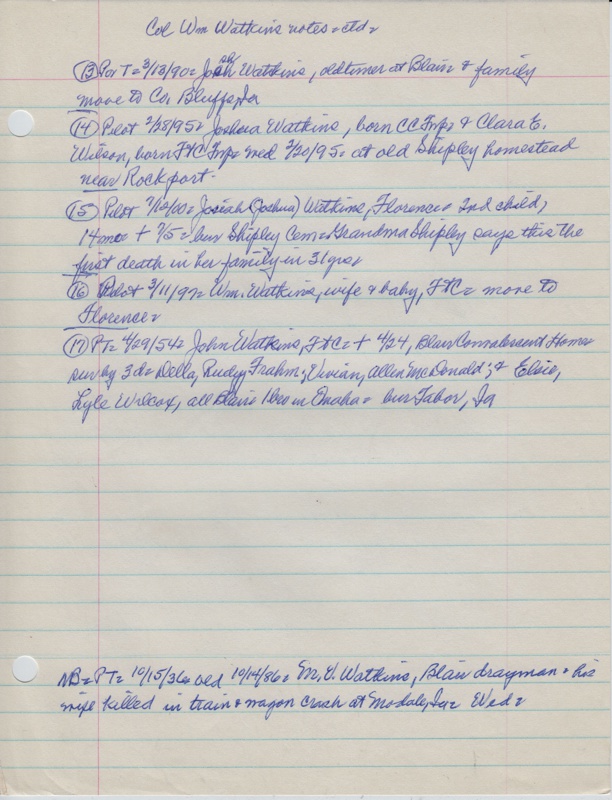 Col Wm Watkins notes = ctd =
(13) Por T = 3/13/90 = Josh Watkins, oldtimer at Blair & family
move to Co. Bluffs, Ia
(14) Pilot 2/28/95 = Joshua Watkins, born CC Tnp = & Clara E.
Wilson, born FtC Tnp = wed 2/20/95 = at old Shipley homestead
near Rockport -
(15) Pilot = Josiah (Joshua) Watkins, Florence = 2nd child,
14 mo + 2/5 = bur Shipley Cem = Grandma Shipley says this the
first death in her family in 31 yrs =
(16) Pilot 3/11/97 = Wm. Watkins, wife & baby, FtC = move to
Florence =
(17) PT = 4/29/54 = John Watkins, FtC = + 4/24, Blair Convalescent Home =
surv by 3 d = Della, Rudy Frahm; Vivian, Allen McDonald; & Elsie,
Lyle Wilcox, all Blair = 1 bro in Omaha = bur Tabor, Ia
NB = PT = 10/15/36 = old 10/14/86 = M. V. Watkins, Blair drayman & his
wife killed in train & wagon crash at Modale, Ia = Wed =